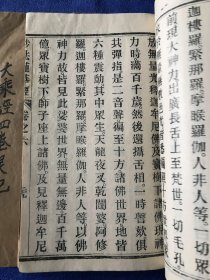 迦樓羅緊那羅摩睺羅伽人非人等一切眾
前現大神力出廣長舌上至梵世一切毛孔
放無量光釋迦牟尼佛及寶樹下諸佛現神
力時滿百千歲然後還攝舌相一時謦欬俱
共彈指是二音聲徧至十方諸佛世界地皆
六種震動其中眾生天龍夜叉乾闥婆阿修
羅迦樓羅緊那羅摩睺羅伽人非人等以佛
神力故皆見此娑婆世界無量無邊百千萬
億眾寶樹下師子座上諸佛及見釋迦牟尼
卷之六
大乘經四卷